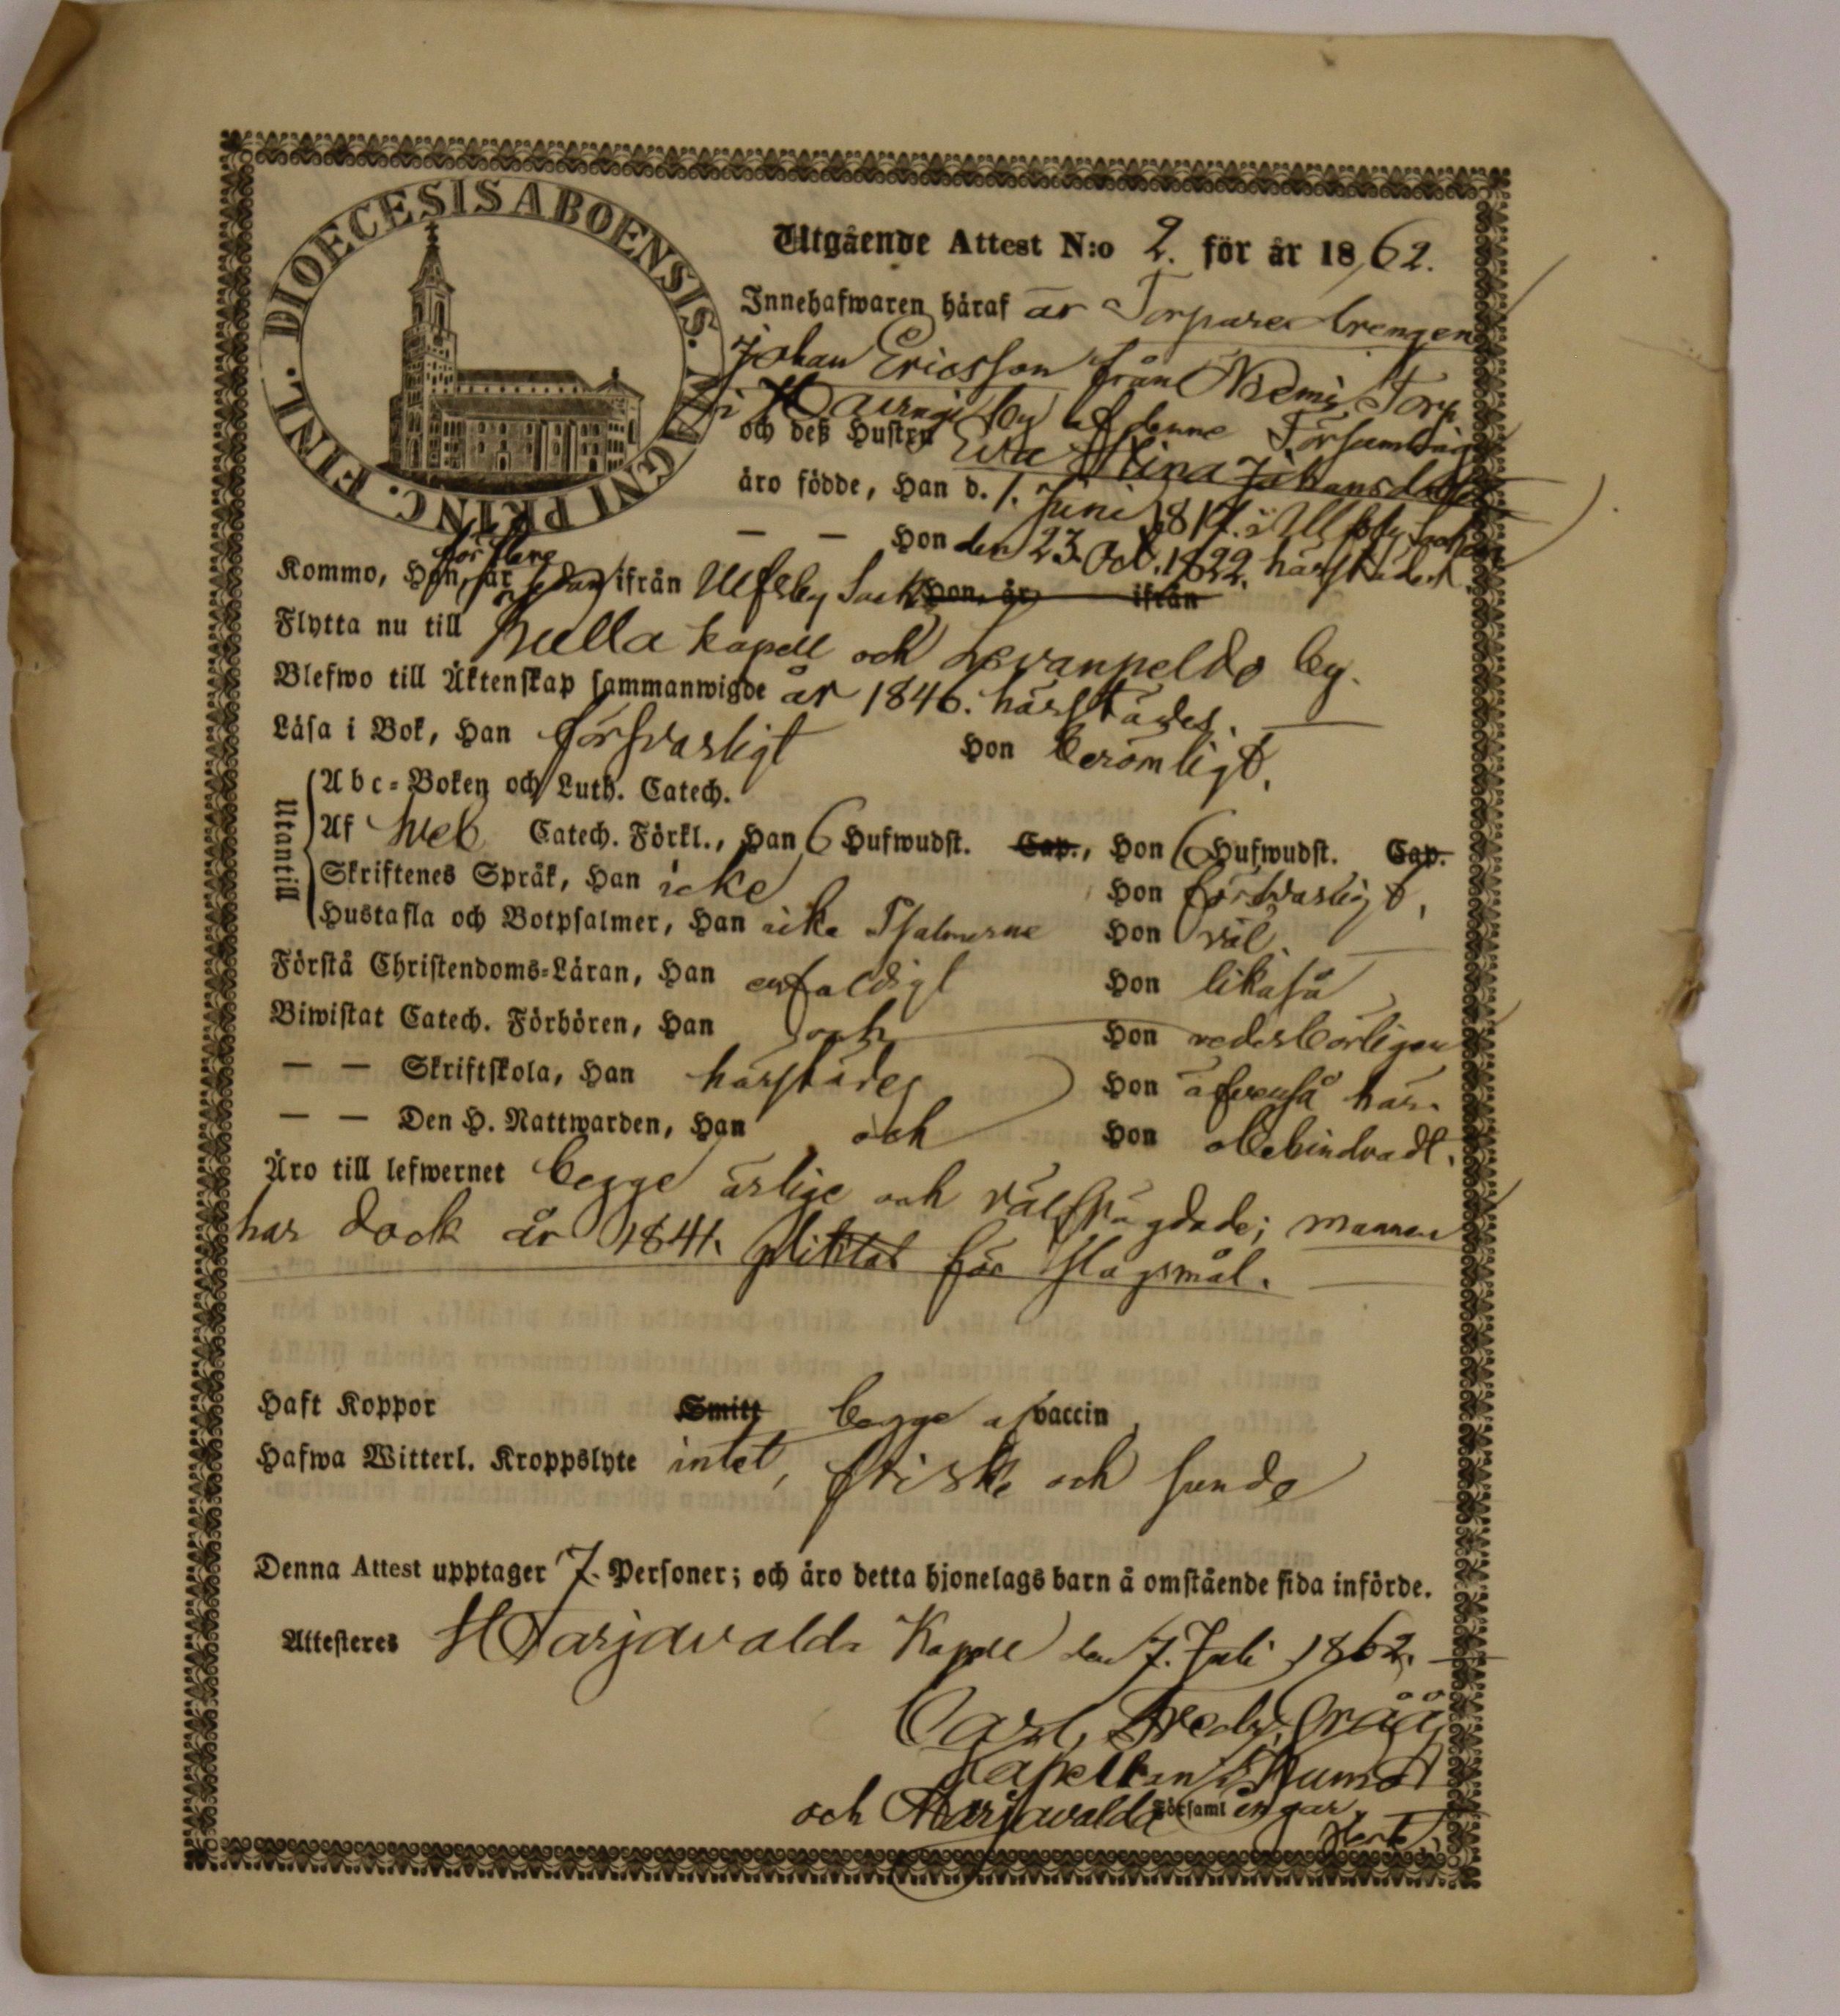 DIOECESIS ABOENSIS. MAGNI PRINC. FINL.
Utgående Attest N:o 2. för år 1862.
Innehafwaren häraf är Torpare
Johan Ericsson från Niemi Torp
i by af denne Församling
och deß Hustru Eva Stina Johansdotter
äro födde, Han d. 1. Juni 1817. i Ulfsby Socken
— — Hon den 23. Oct. 1822. härstädes.
för flere
Kommo, Han, år sedan ifrån Ulfsby Sock. Hon, år ifrån
Flytta nu till Kulla kapell och by.
Blefwo till Äktenskap sammanwigde år 1846. härstädes.
Läsa i Bok, Han försvarligt Hon berömligt.
Utantill
Abc-Boken och Luth. Catech.
Af Sveb. Catech. Förkl., Han 6 Hufwudst. Cap., Hon 6 Hufwudst. Cap.
Skriftenes Språk, Han icke Hon försvarligt.
Hustafla och Botpsalmer, Han icke Psalmerne Hon väl.
Förstå Christendoms-Läran, Han enfaldigt Hon likaså
Biwistat Catech. Förhören, Han och Hon vederbörligen
— — Skriftskola, Han härstädes Hon äfvenså här.
— — Den H. Nattwarden, Han och Hon obehindradt.
Äro till lefwernet begge ärlige och välfrägdade; mannen
har dock år 1841. pliktat för slagsmål.
Haft Koppor Smitt begge af vaccin
Hafwa Witterl. Kroppslyte intet, friske och sunde
Denna Attest upptager 7. Personer; och äro detta hjonelags barn å omstående sida införde.
Attesteres Harjawalda Kapell den 7. Juli 1862.
Carl Fredr. Gråå
Kapellan i Kumo
och Harjawalda Församlingar.